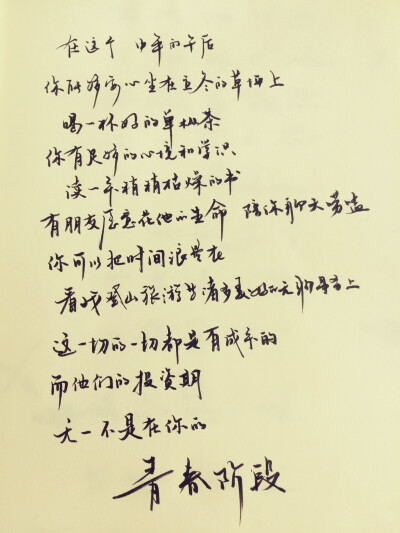 在这个 中年的午后
你能够安心坐在立冬的草坪上
喝一杯好的单枞茶
你有足够的心境和学识
读一本稍稍枯燥的书
有朋友愿意花他的生命 陪你聊天劳嗑
你可以把时间浪费在
看戏登山旅游等诸多美好的无聊事上
这一切的一切都是有成本的
而他们的投资期
无一不是在你的
青春阶段